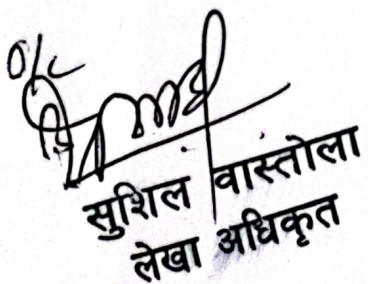 O/C
सुशिल वास्तोला
लेखा अधिकृत